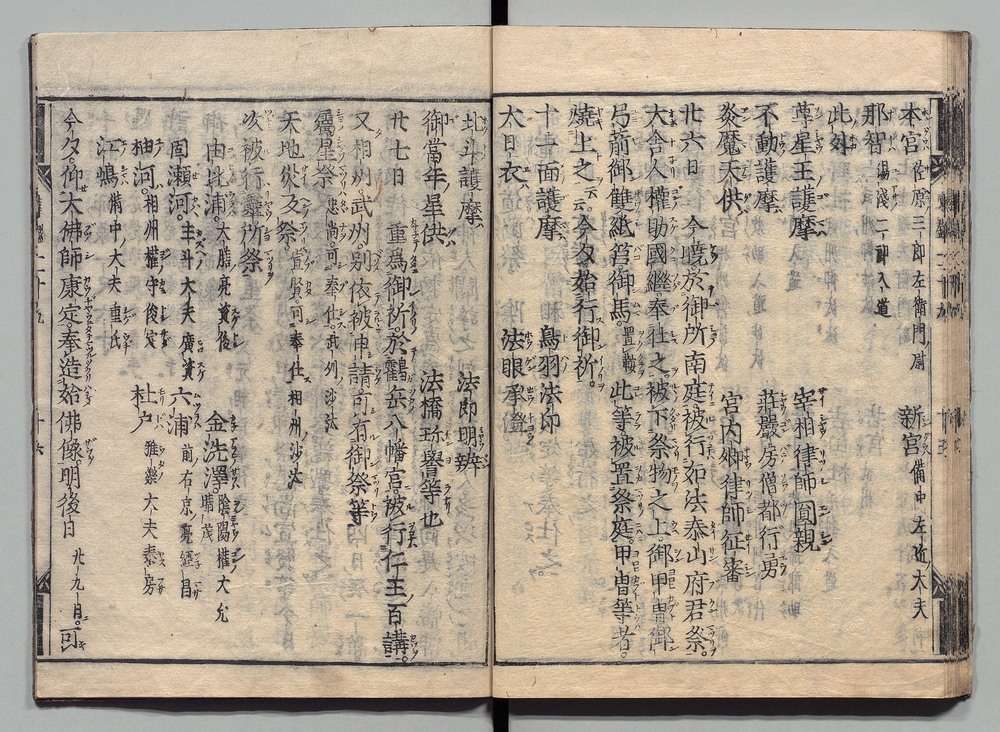 本宮 佐原三郎左衛門尉 新宮 備中左近大夫
那智 湯浅二郎入道
此外
尊星王護摩 宰相律師圓親
不動護摩 莊嚴房僧都行勇
炎魔天供 宮内卿律師征審
廿六日 今曉於御所南庭被行如法泰山府君祭
大舎人權助國繼奉仕之被下祭物之上御甲冑御
弓箭御雙紙筥御馬 置鞍 此等被置祭庭甲冑等者
燒上之 云云 今夕始行御祈
十一面護摩 鳥羽法印
大日衣 法眼承澄
北斗護摩 法印明辨
御當年星供 法橋珎譽等也
廿七日 重爲御祈於鶴岳八幡宮被行仁王百講
又相州武州別依被申請可有御祭等
屬星祭 忠尚可奉仕武州沙汰
天地災及祭 宣賢可奉仕相州沙汰
次被行靈所祭
由比浦 大膳亮資俊 金洗澤 陰陽權大允晴茂
固瀬河 主斗大夫廣資 六浦 前右京亮經昌
柚河 相州權守俊定 杜戸 雅樂大夫泰房
江嶋 備中大夫重氏
今夕仰大佛師康定奉造始佛像明後日 廿九日 可